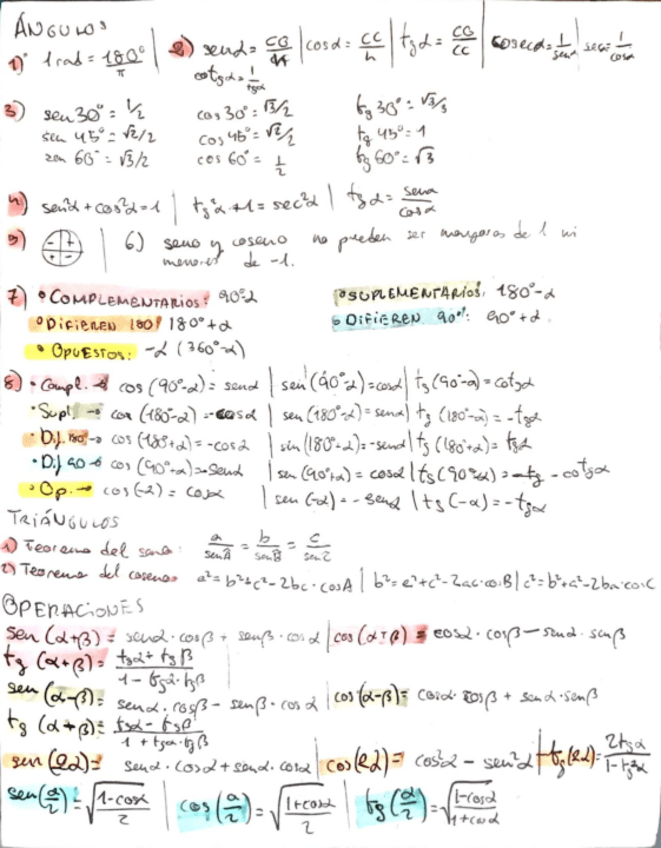 ÁNGULOS
1) 1 rad = 180°/π | 2) senα = CO/h | cosα = CC/h | tgα = CO/CC | cosecα = 1/senα | secα = 1/cosα
cotgα = 1/tgα
3) sen30° = 1/2 cos30° = √3/2 tg30° = √3/3
sen 45° = √2/2 cos45° = √2/2 tg 45° = 1
sen 60° = √3/2 cos 60° = 1/2 tg 60° = √3
4) sen²α + cos²α = 1 | tg²α + 1 = sec²α | tgα = senα/cosα
5) | 6) seno y coseno no pueden ser mayores de 1 ni
menores de -1.
7) • COMPLEMENTARIOS: 90°-α • SUPLEMENTARIOS: 180°-α
• DIFIEREN 180° 180°+α • DIFIEREN 90°: 90°+α
• OPUESTOS: -α (360°-α)
8) • Compl. → cos (90°-α) = senα | sen (90°-α) = cosα | tg (90°-α) = cotgα
• Supl. → cos (180°-α) = -cosα | sen (180°-α) = senα | tg (180°-α) = -tgα
• Dif 180° → cos (180°+α) = -cosα | sen (180°+α) = -senα | tg (180°+α) = tgα
• Dif 90 → cos (90°+α) = -senα | sen (90°+α) = cosα | tg (90°+α) = - cotgα
• Op. → cos (-α) = cosα | sen (-α) = - senα | tg (-α) = - tgα
TRIÁNGULOS
1) Teorema del seno: a/senÂ = b/senB̂ = c/senĈ
2) Teorema del coseno: a² = b² + c² - 2bc · cosA | b² = a² + c² - 2ac · cosB | c² = b² + a² - 2ba · cosC
OPERACIONES
sen (α+β) = senα · cosβ + senβ · cosα | cos (α+β) = cosα · cosβ - senα · senβ
tg (α+β) = tgα + tgβ / 1 - tgα · tgβ
sen (α-β) = senα · cosβ - senβ · cosα | cos (α-β) = cosα · cosβ + senα · senβ
tg (α+β) = tgα - tgβ / 1 + tgα · tgβ
sen (2α) = senα · cosα + senα · cosα | cos (2α) = cos²α - sen²α | tg (2α) = 2tgα / 1 - tg²α
sen (α/2) = √(1-cosα / 2) | cos (α/2) = √(1+cosα / 2) | tg (α/2) = √(1-cosα / 1+cosα)